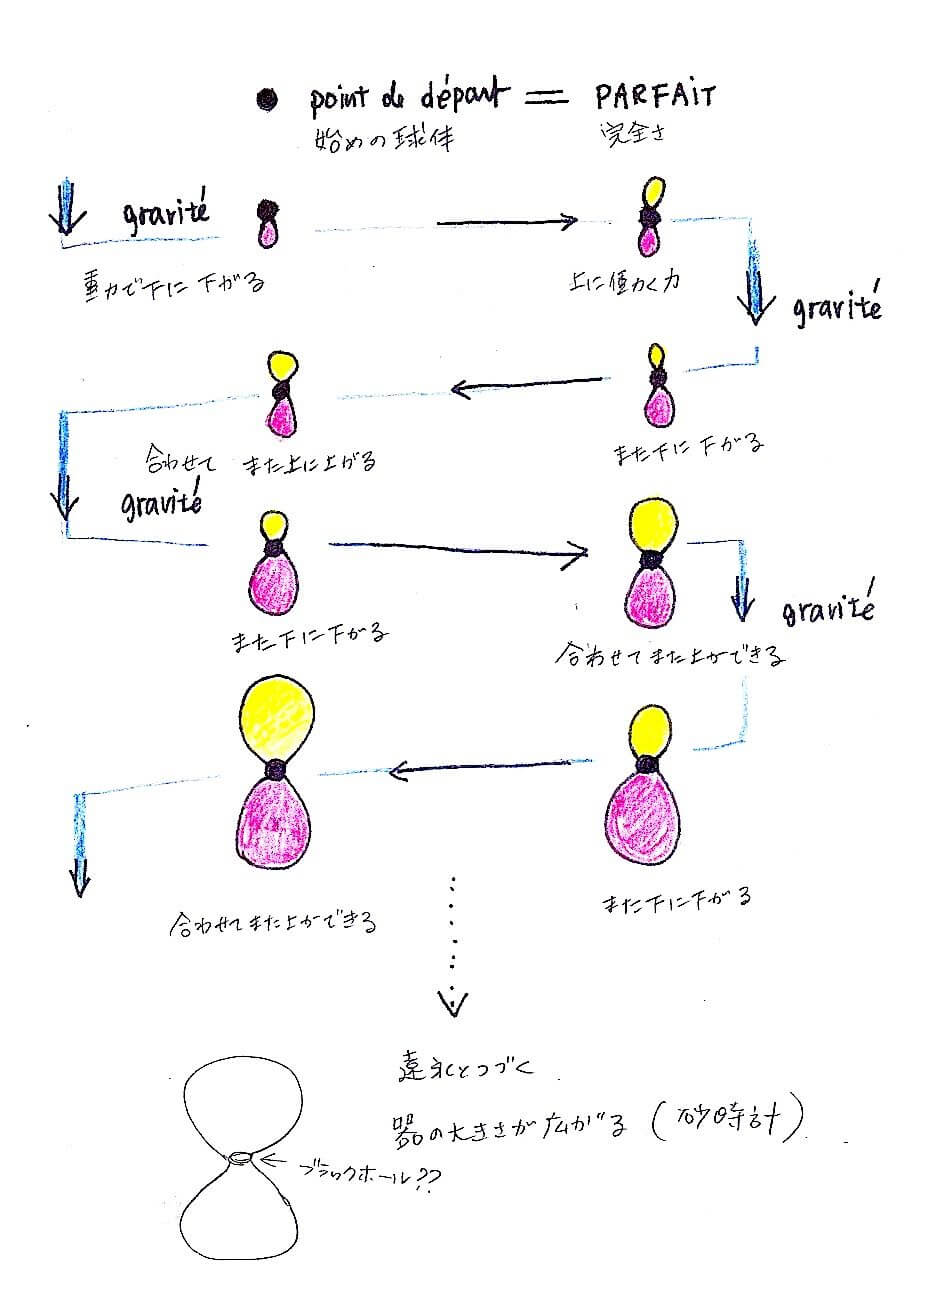 point de départ = PARFAIT
始めの球体 完全さ
gravité
重力で下に下がる
上に働く力
gravité
また下に下がる
合わせて また上に上がる
gravité
また下に下がる
合わせてまた上ができる
gravité
また下に下がる
合わせてまた上ができる
遠永とつづく
器の大きさが広がる (砂時計)
ブラックホール??